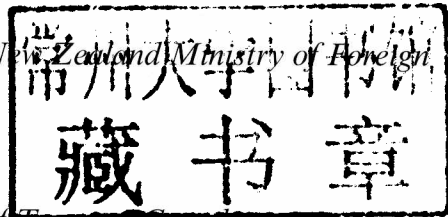 New Zealand Ministry of Foreign
常州大学图书馆
藏书章